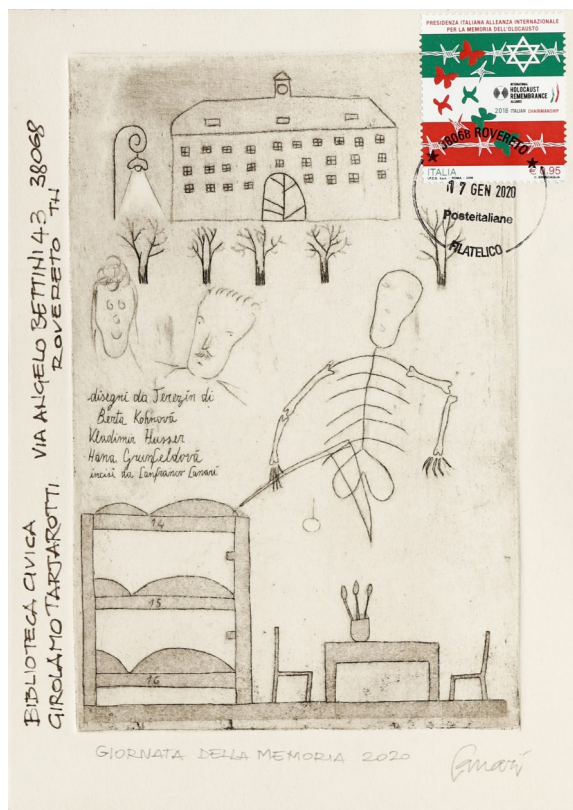 PRESIDENZA ITALIANA ALLEANZA INTERNAZIONALE
PER LA MEMORIA DELL'OLOCAUSTO
INTERNATIONAL
HOLOCAUST
REMEMBRANCE
ALLIANCE
2018 ITALIAN CHAIRMANSHIP
38068 ROVERETO
ITALIA
€ 0,95
17 GEN 2020
Posteitaliane
FILATELICO
BIBLIOTECA CIVICA VIA ANGELO BETTINI 43 38068
GIROLAMO TARTAROTTI ROVERETO TN
disegni da Terezín di
Berta Kohnová
Vladimir Husser
Hana Grunfeldová
incisi da Lanfranco Lanari
14
15
16
GIORNATA DELLA MEMORIA 2020
Lanari